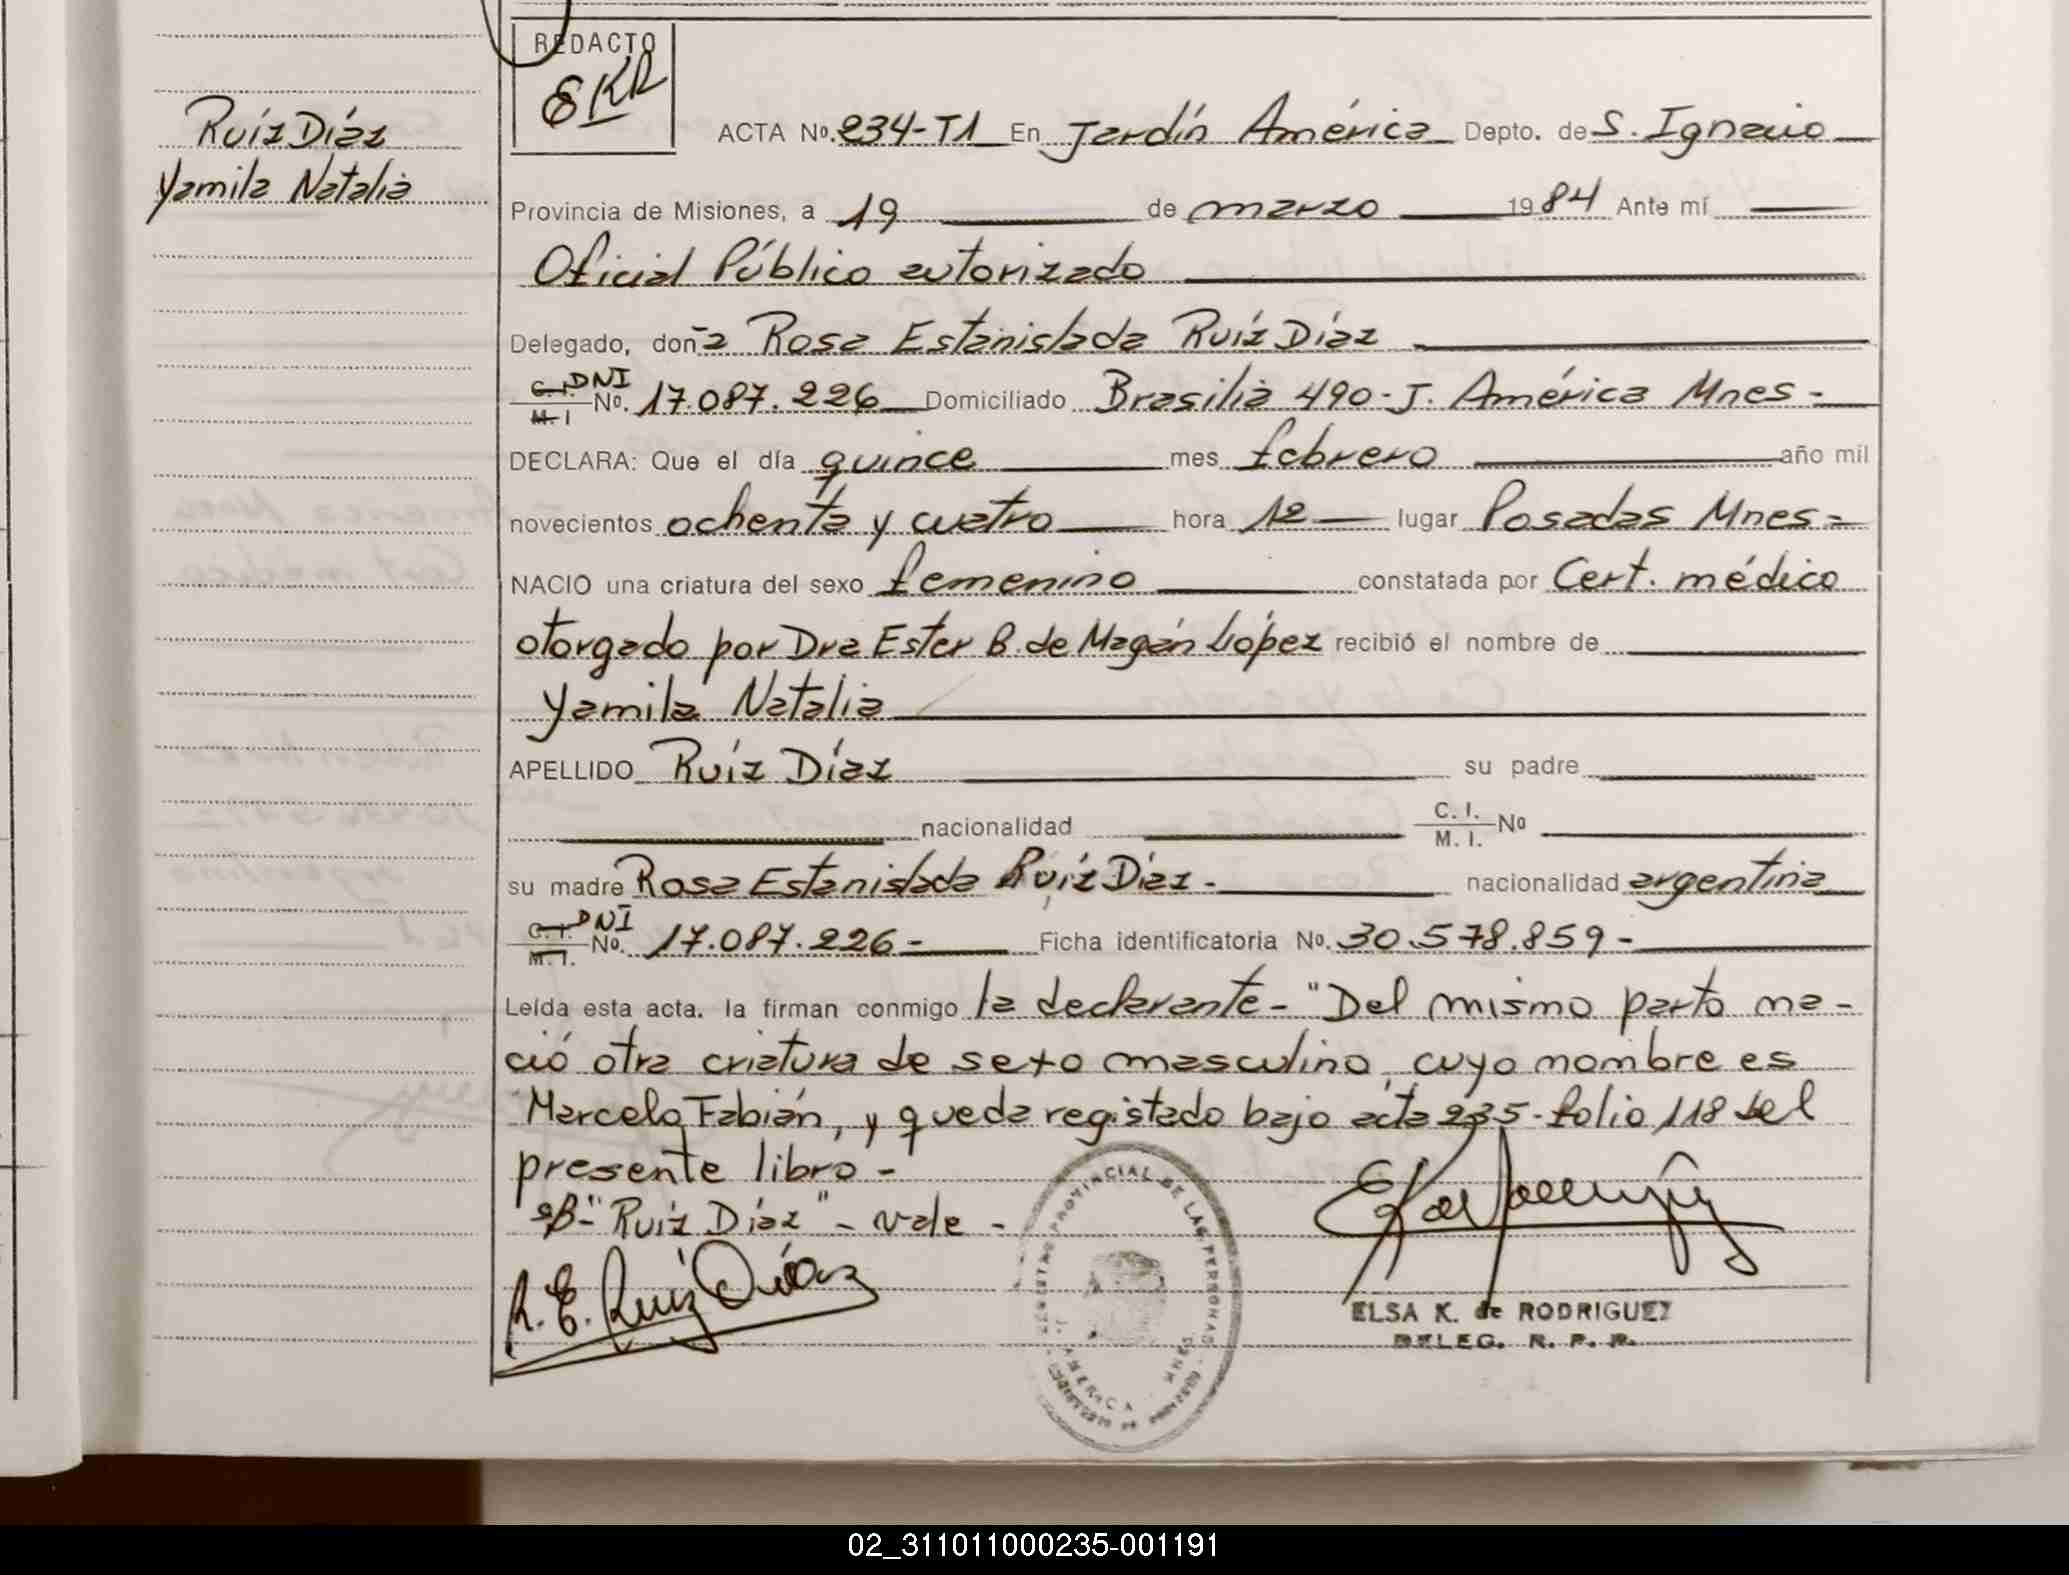 REDACTO
EKR
Ruíz Díaz
Yamila Natalia
ACTA Nº. 234-T1 En Jardín América Depto. de S. Ignacio
Provincia de Misiones, a 19 de marzo 1984 Ante mí
Oficial Público autorizado
Delegado, doña Rosa Estanislada Ruíz Díaz
C.I. DNI
M. I Nº. 17.087.226 Domiciliado Brasilia 490-J. América Mnes-
DECLARA: Que el día quince mes febrero año mil
novecientos ochenta y cuatro hora 12 lugar Posadas Mnes-
NACIO una criatura del sexo femenino constatada por Cert. médico
otorgado por Dra Ester B. de Magán López recibió el nombre de
Yamila Natalia
APELLIDO Ruíz Díaz su padre
nacionalidad C. I. M. I. Nº
su madre Rosa Estanislada Ruíz Díaz- nacionalidad argentina
C. I. DNI
M. I. Nº. 17.087.226- Ficha identificatoria Nº. 30.578.859-
Leída esta acta. la firman conmigo la declarante- "Del mismo parto na-
ció otra criatura de sexo masculino, cuyo nombre es
Marcelo Fabián, y queda registado bajo acta 235-folio 118 del
presente libro-
"Ruíz Díaz" - vale -
R. E. Ruiz Díaz
REGISTRO PROVINCIAL DE LAS PERSONAS
AMERICA MNES
ELSA K. de RODRIGUEZ
DELEG. R. P. P.
02_311011000235-001191